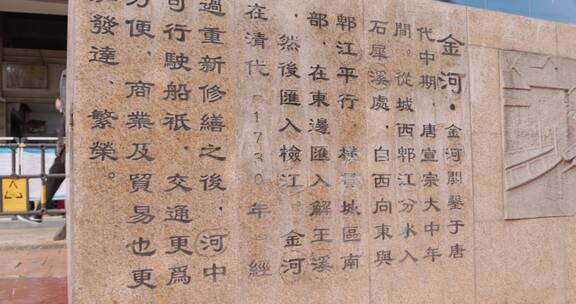 金河·金河開鑿于唐
代中期，唐宣宗大中年
間。從城西郫江分水入
石犀溪處，自西向東與
郫江平行，橫貫城區南
部，在東邊匯入解玉溪
，然後匯入檢江。金河
在清代（1730年）經
過重新修繕之後，河中
可行駛船祇，交通更爲
方便，商業及貿易也更
發達、繁榮。